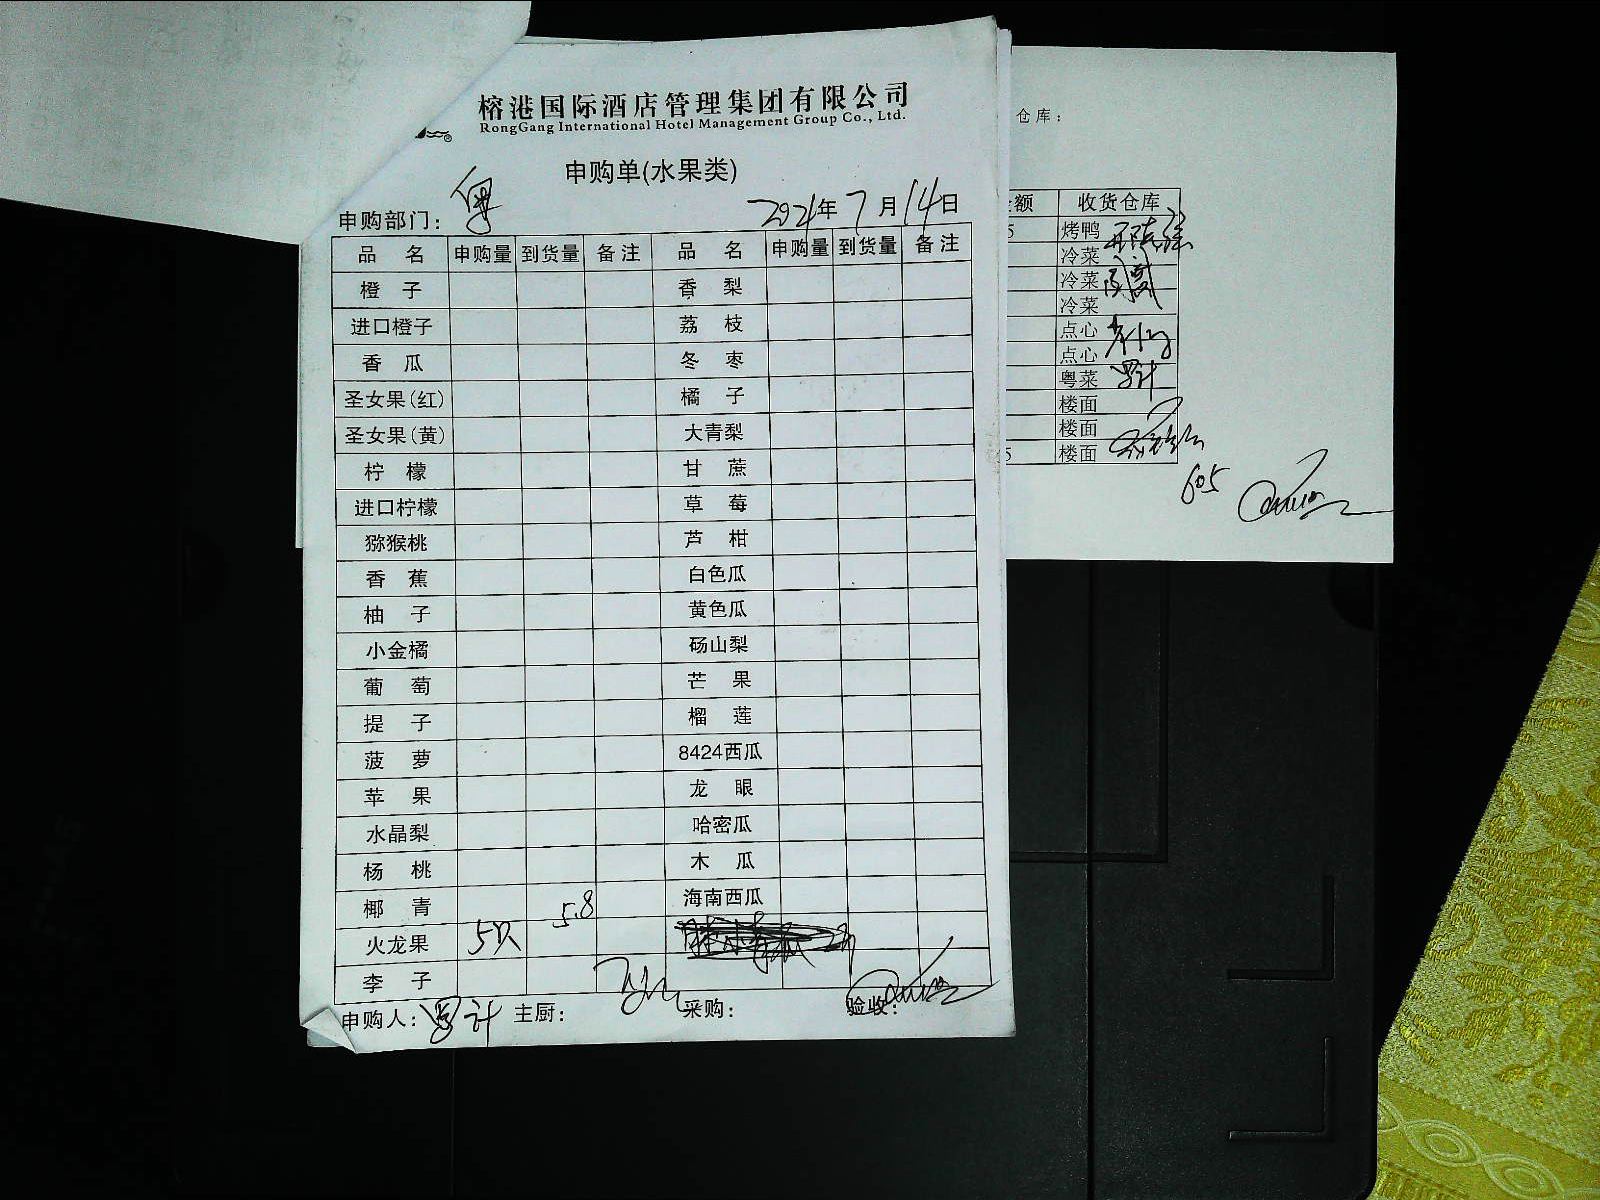 榕港国际酒店管理集团有限公司
RongGang International Hotel Management Group Co., Ltd.
申购单(水果类)
申购部门: 粤 2021年7月14日
品 名 申购量 到货量 备注 品 名 申购量 到货量 备注
橙 子 香 梨
进口橙子 荔 枝
香 瓜 冬 枣
圣女果(红) 橘 子
圣女果(黄) 大青梨
柠 檬 甘 蔗
进口柠檬 草 莓
猕猴桃 芦 柑
香 蕉 白色瓜
柚 子 黄色瓜
小金橘 砀山梨
葡 萄 芒 果
提 子 榴 莲
菠 萝 8424西瓜
苹 果 龙 眼
水晶梨 哈密瓜
杨 桃 木 瓜
椰 青 海南西瓜
火龙果 5只 5.8
李 子
申购人: 主厨: 采购: 验收:
仓库:
额 收货仓库
5 烤鸭
冷菜
冷菜
冷菜
点心
点心
粤菜
楼面
楼面
5 楼面
605